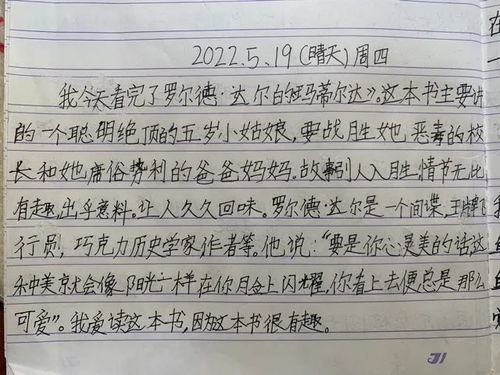 2022.5.19(晴天)周四
我今天看完了罗尔德·达尔的《玛蒂尔达》。这本书主要讲
的一个聪明绝顶的五岁小姑娘,要战胜她恶毒的校
长和她庸俗势利的爸爸妈妈。故事引人入胜情节无比
有趣,出乎意料。让人久久回味。罗尔德·达尔是一个间谍,王牌飞
行员,巧克力历史学家作者等。他说:“要是你心灵美的话这
种美就会像阳光一样在你脸上闪耀,你看上去便总是那么
可爱”。我爱读这本书,因为这本书很有趣。